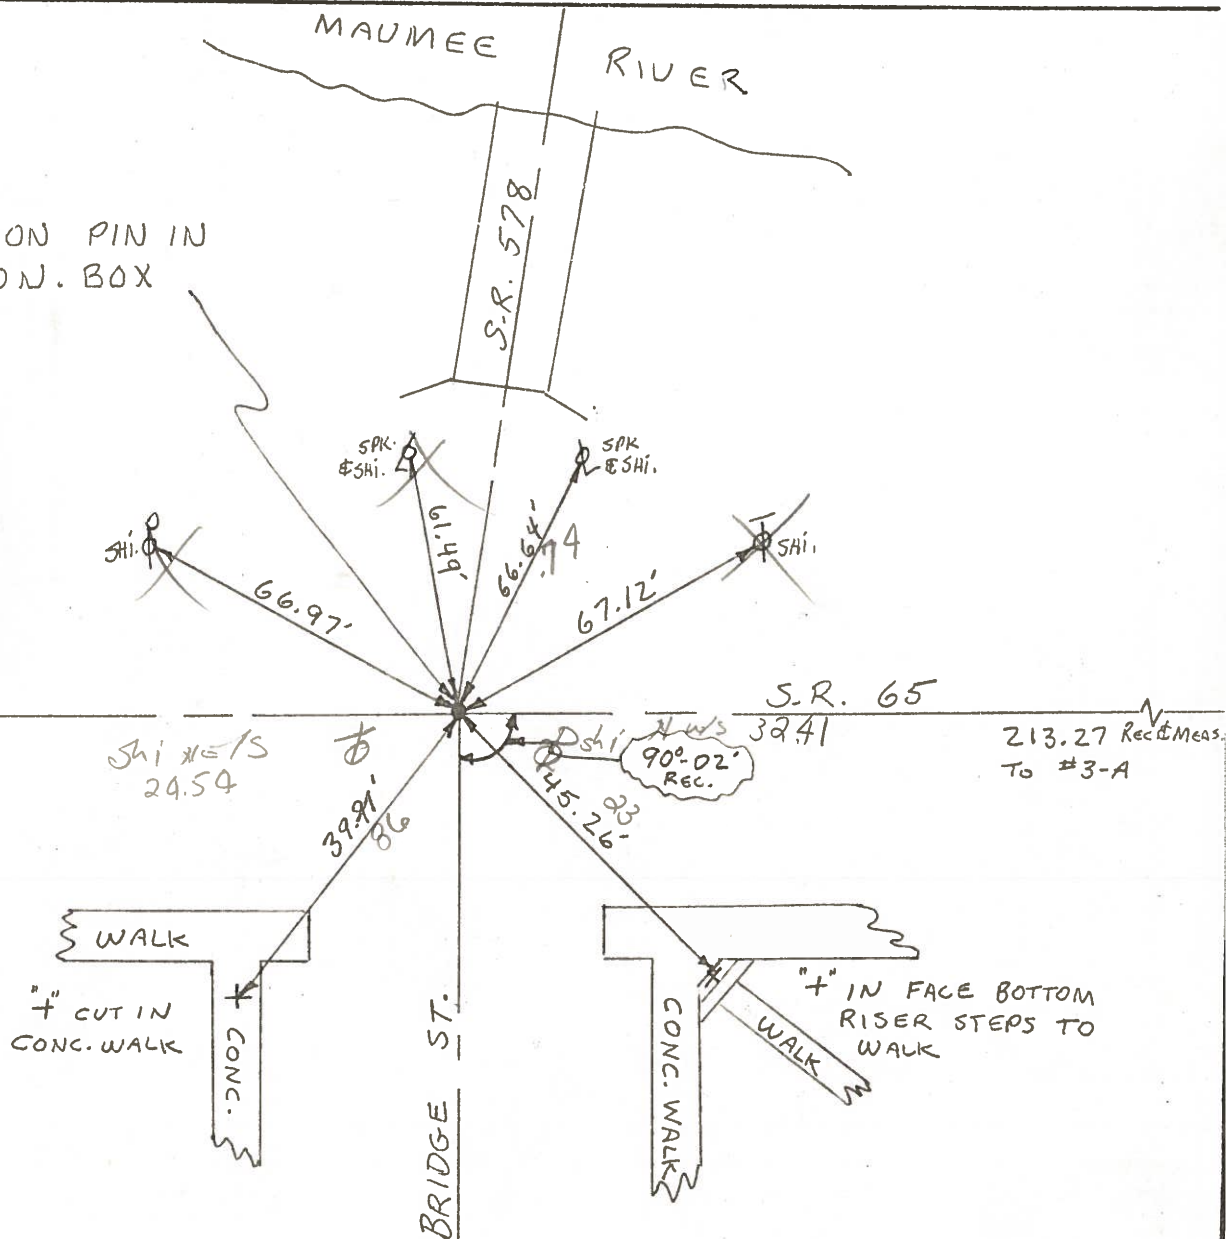 MAUMEE RIVER
ON PIN IN
ON. BOX
S.R. 578
SPK.
& SHI.
SPK
& SHI.
SHI.
SHI.
66.97'
66.64'
.74
67.12'
S.R. 65
32.41
213.27 REC & MEAS.
TO #3-A
90°-02'
REC.
Shi
24.54
39.91'
86
45.26'
23
WALK
"+" CUT IN
CONC. WALK
CONC.
BRIDGE ST.
CONC. WALK
WALK
"+" IN FACE BOTTOM
RISER STEPS TO
WALK